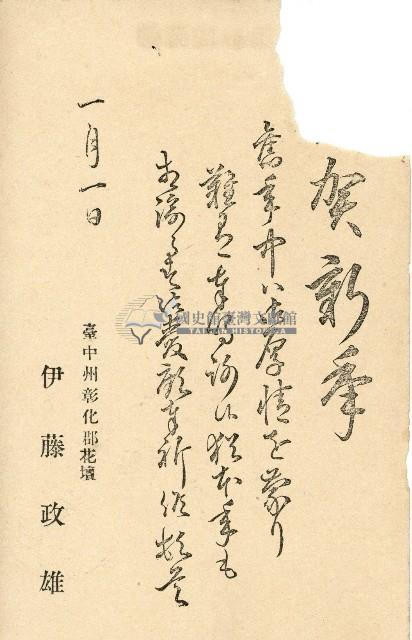 賀新年
舊年中ハ御厚情を蒙り
難有奉鳴謝候猶本年も
不相渝御愛顧奉祈候頓首
一月一日
臺中州彰化郡花壇
伊藤政雄
國史館臺灣文獻館
TAIWAN HISTORICA